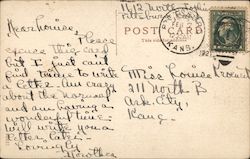 1612 North
Pittsburg
Dear Louise:
Please
excuse this card
but I just can't
find time to write
a letter. Am crazy
about the Normal
and am having a
wonderful time.
Will write you a
letter later.
Lovingly
Dorothea
POST CARD
KANS.
Miss Louise
211 North B
Ark. City
Kans.